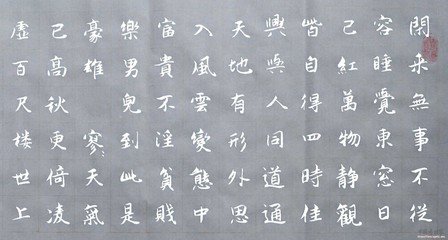 閑来無事不從
容睡覺東窓日
己紅萬物静觀
皆自得四時佳
興與人同道通
天地有形外思
入風雲變態中
富貴不淫貧賎
樂男兒到此是
豪雄 寥々天氣
己高秋更倚凌
虛百尺楼世上